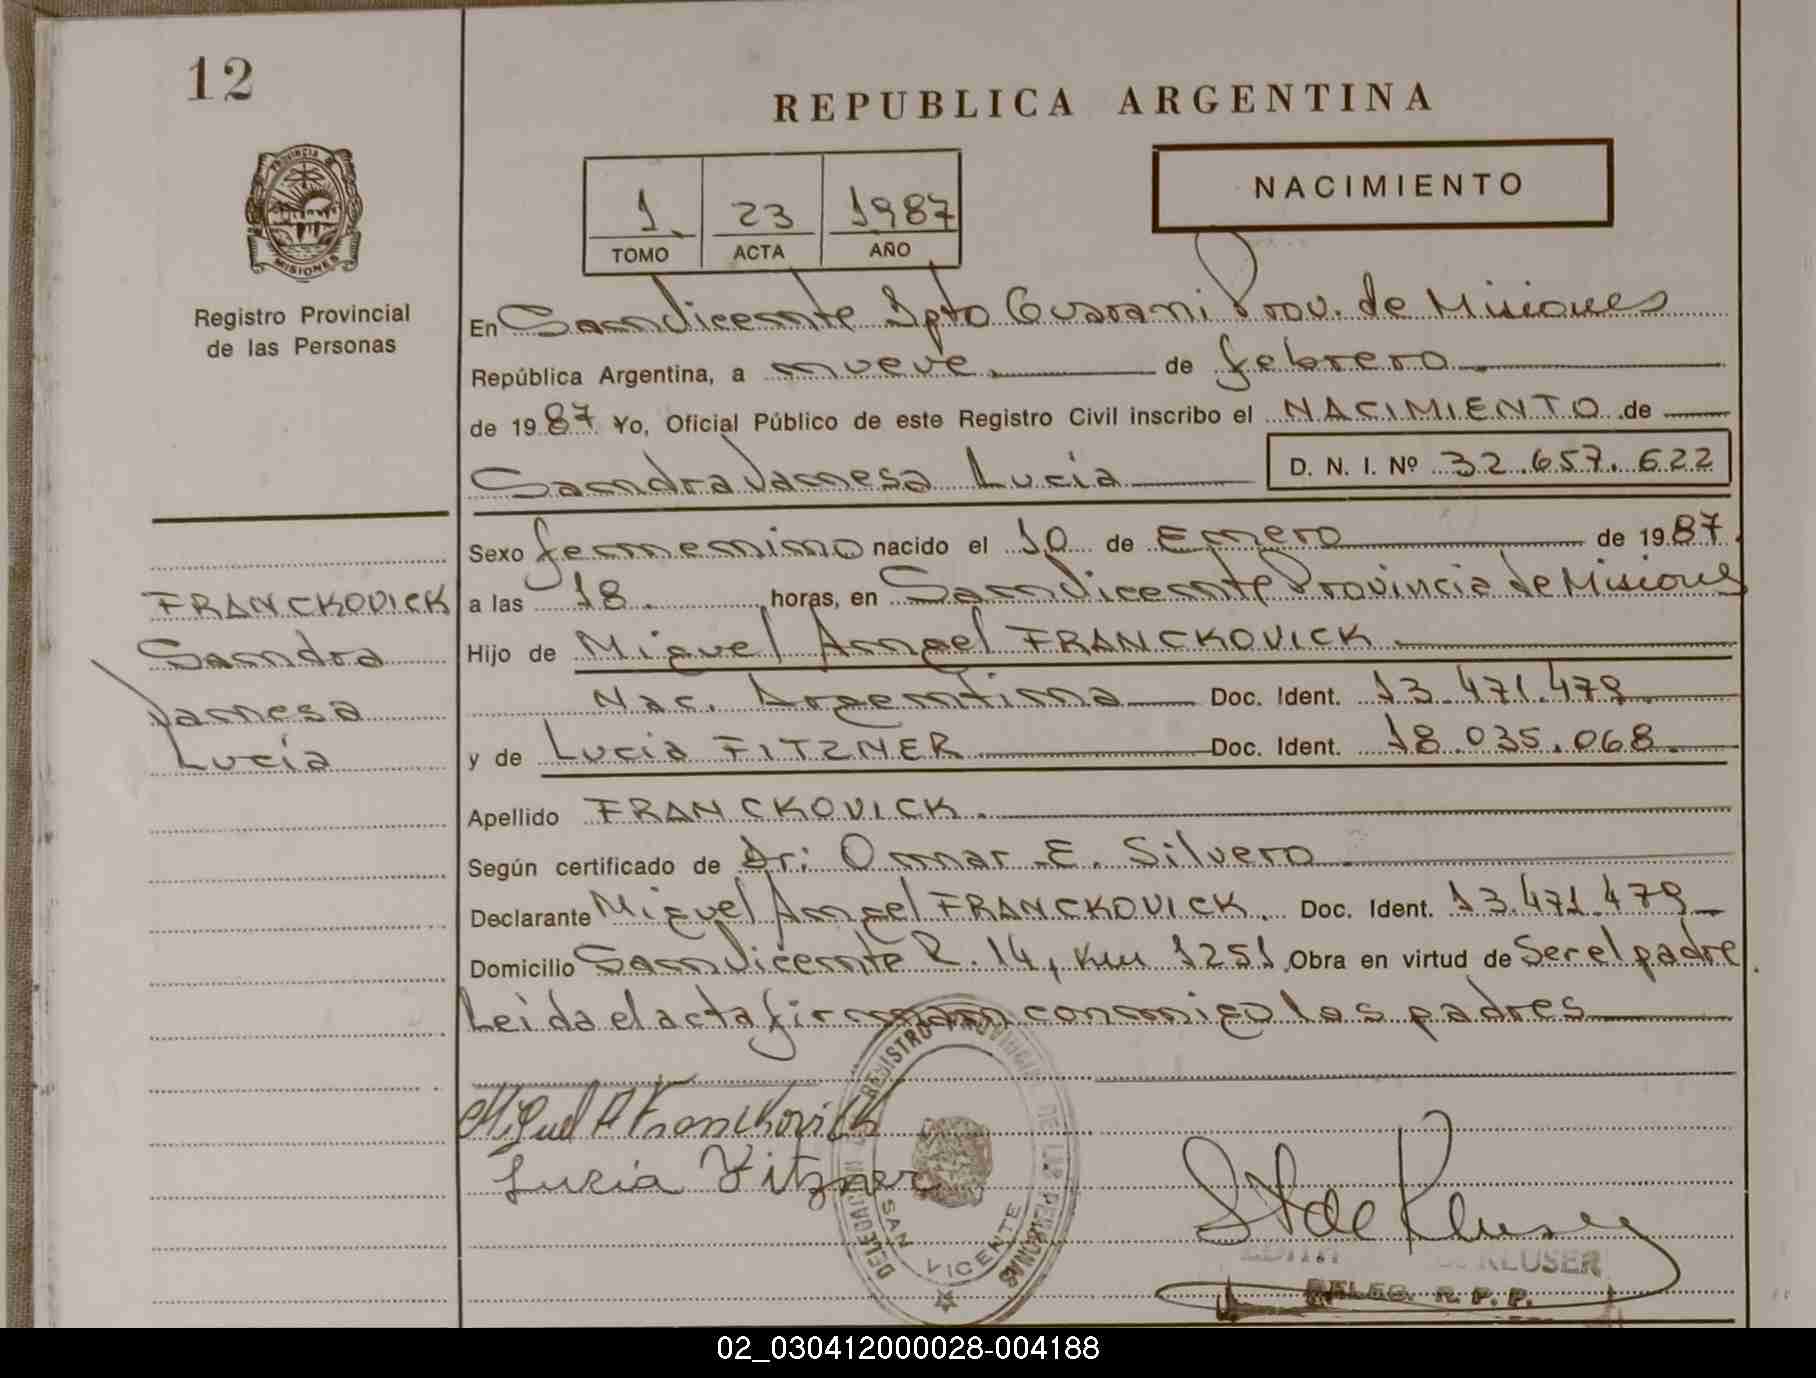 12
REPUBLICA ARGENTINA
NACIMIENTO
1 23 1987
TOMO ACTA AÑO
PROVINCIA DE
MISIONES
Registro Provincial
de las Personas
En San Vicente Dpto Guarani Prov. de Misiones
República Argentina, a nueve de febrero
de 1987 Yo, Oficial Público de este Registro Civil inscribo el NACIMIENTO de
Sandra Vanesa Lucia D. N. I. Nº 32.657.622
Sexo femenino nacido el 10 de Enero de 1987.
a las 18. horas, en San Vicente Provincia de Misiones
Hijo de Miguel Angel FRANCKOVICK
Nac. Argentina Doc. Ident. 13.471.479
y de Lucia FITZNER Doc. Ident. 18.035.068.
FRANCKOVICK
Sandra
Vanesa
Lucía
Apellido FRANCKOVICK.
Según certificado de Dr: Omar E. Silvero
Declarante Miguel Angel FRANCKOVICK. Doc. Ident. 13.471.479
Domicilio San Vicente R. 14, Km 1251 Obra en virtud de Ser el padre.
Leida el acta firman conmigo los padres
Miguel A Franckovick
Lucia Fitzner
DELEGACION REGISTRO PROVINCIAL DE LAS PERSONAS
SAN VICENTE
EDITH de KLUSER
DELEG. R. P. P.
02_030412000028-004188